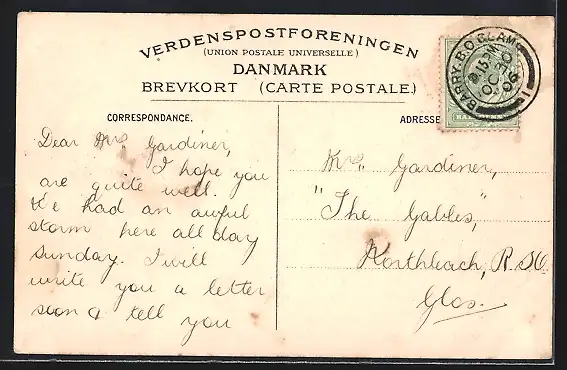 VERDENSPOSTFORENINGEN
(UNION POSTALE UNIVERSELLE)
DANMARK
BREVKORT (CARTE POSTALE)
CORRESPONDANCE.
Dear Mrs Gardiner,
I hope you
are quite well.
We had an awful
storm here all day
Sunday. I will
write you a letter
soon & tell you
ADRESSE
BARRY. GLAM
8 15
OC 30
06
1
Mrs Gardiner,
"The Gables,"
Northleach, R.S.O.
Glos.